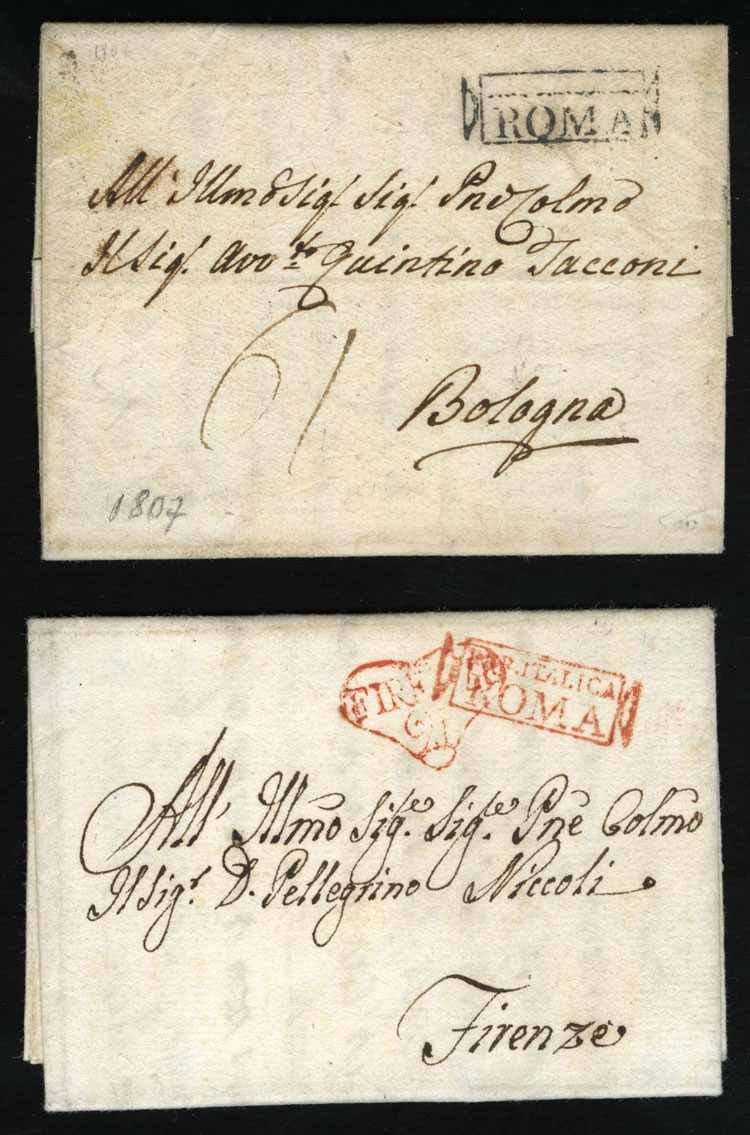 ROMA
All' Illmo Sigr. Sigr. Pne Colmo
Il Sigr. Avvto Quintino Tacconi
61
Bologna
1807
FIRE
COR. ITALICA
ROMA
All' Illmo Sigre. Sigre. Pne Colmo
Il Sigr. D. Pellegrino Niccoli.
Firenze